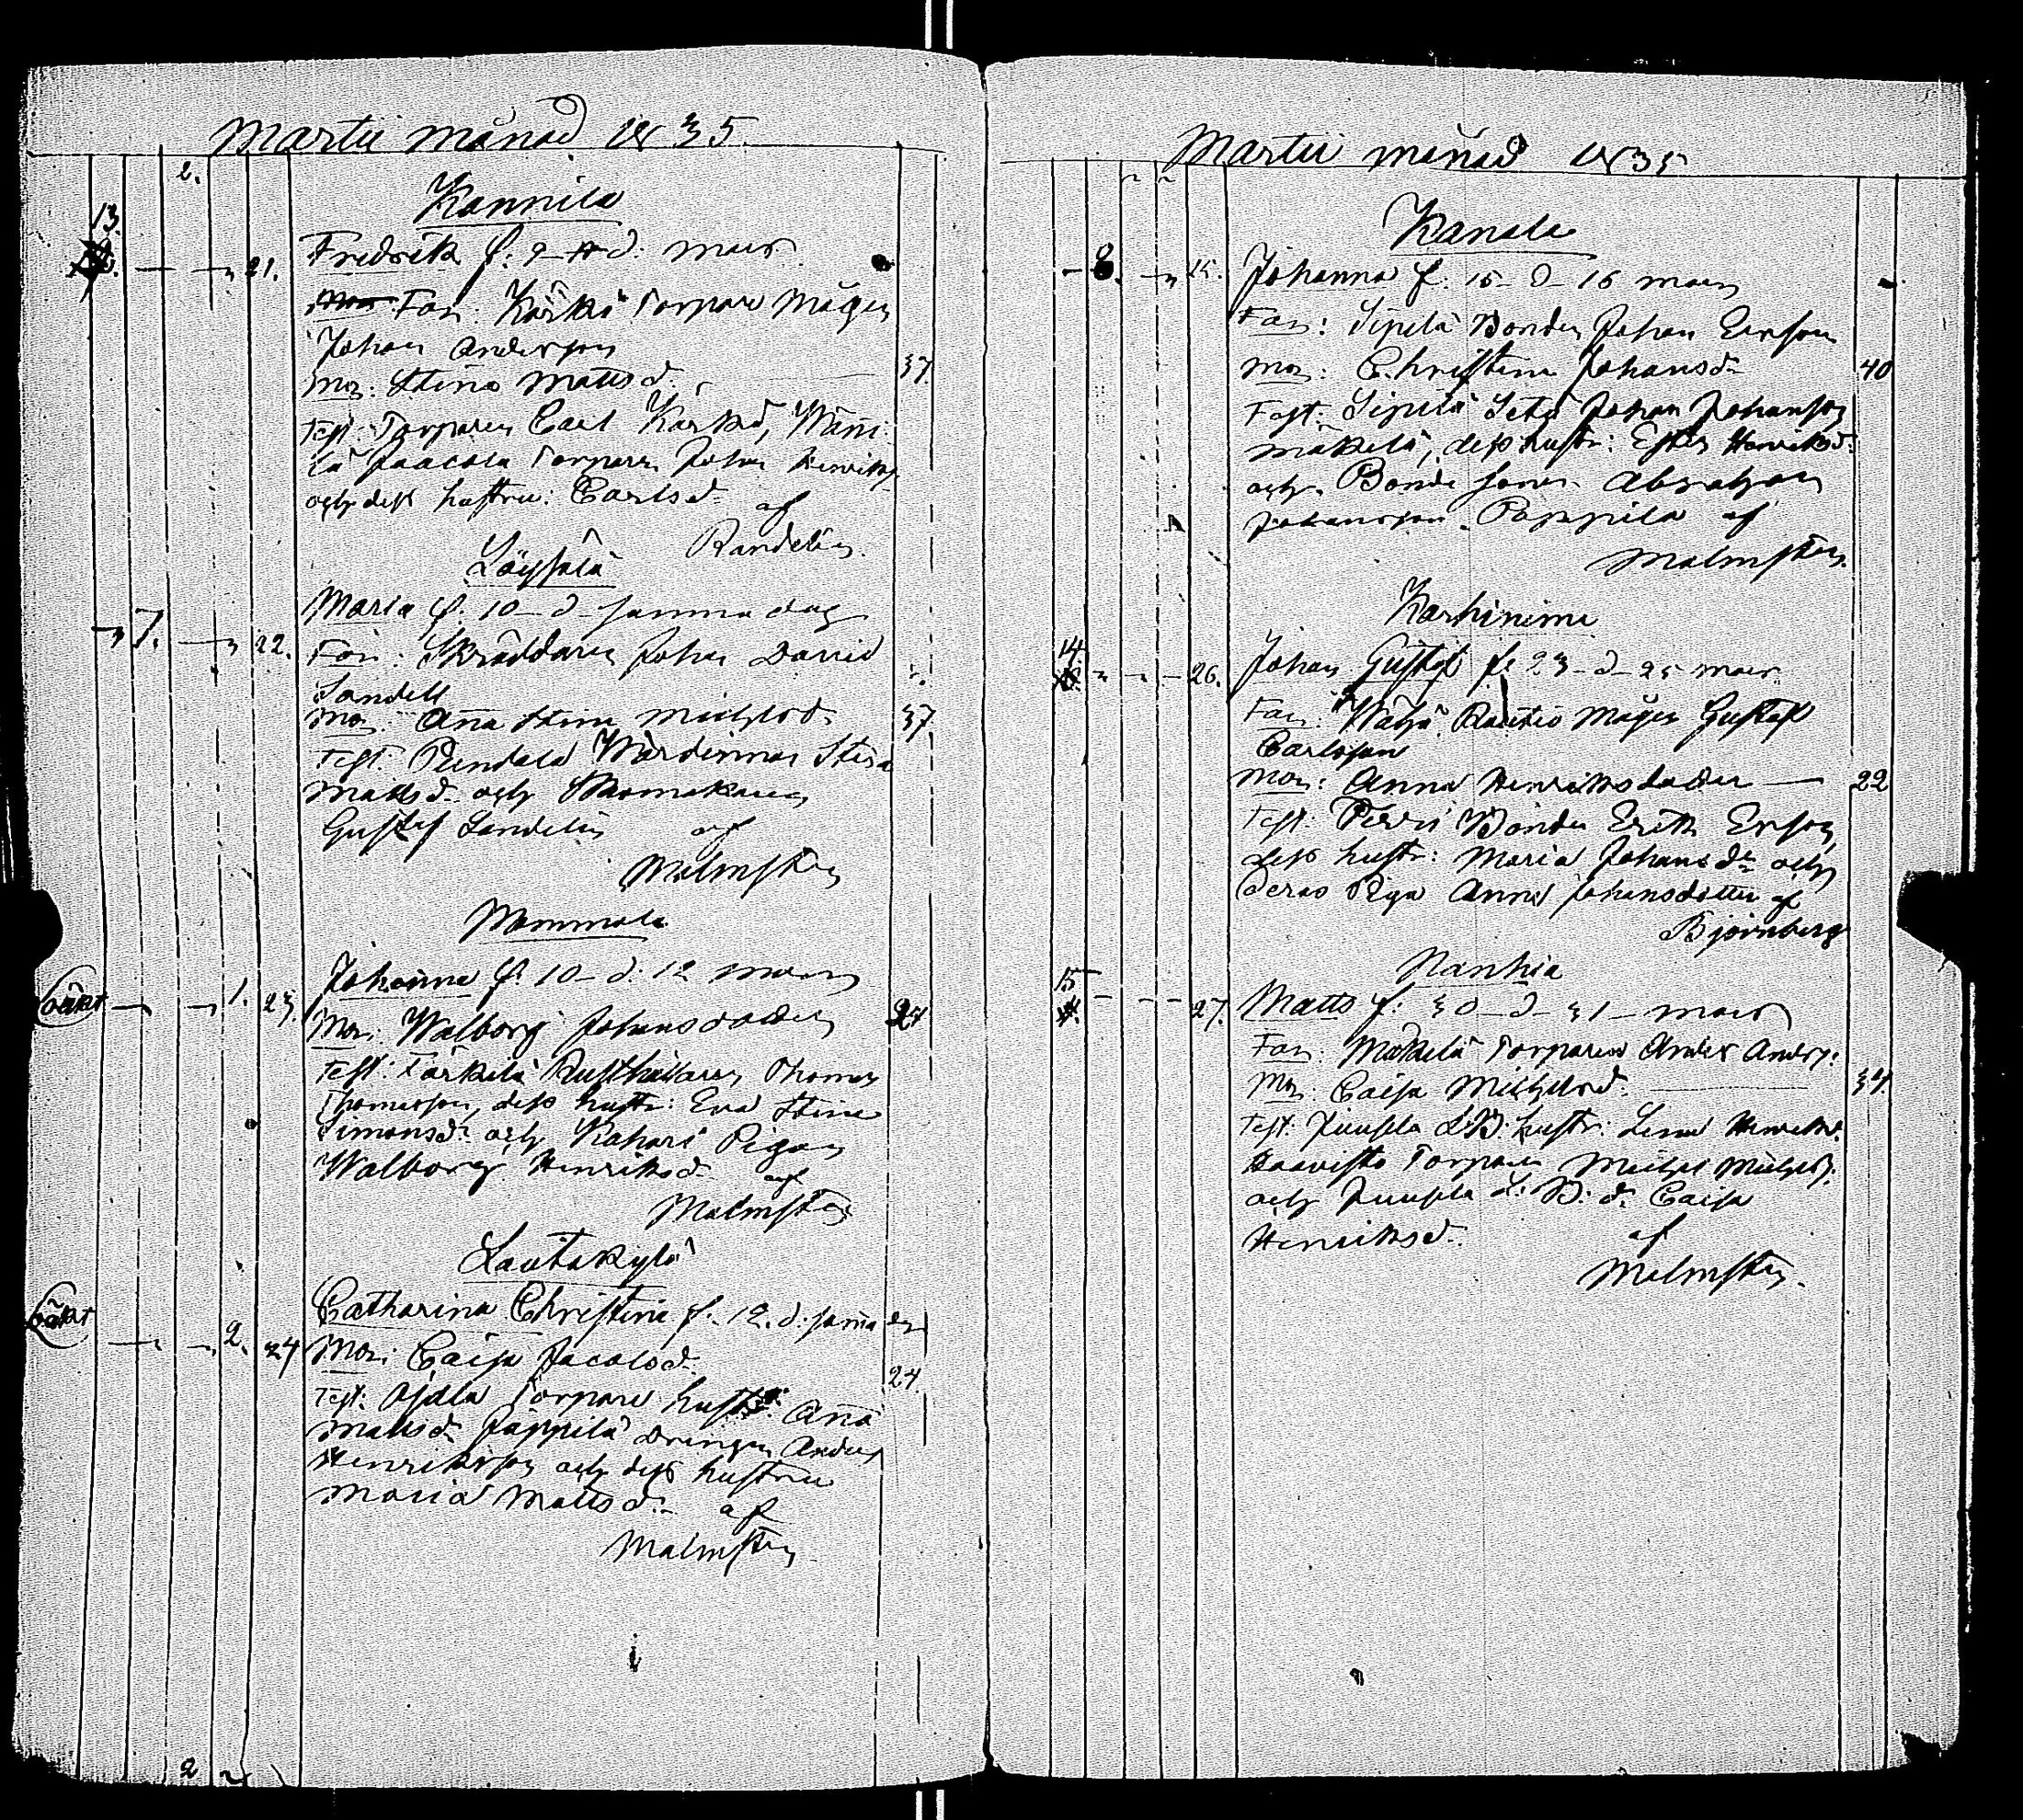 Martii månad 1835.
2.
Kannila
13.
21.
Fredrik f. 9 d. mars
Far: Kärki Torpare Mågen
Johan Anderson
Mor: Stina Mattsd. 37.
Test: Torparen Carl Kärki, Wäni-
lä Jaacola Torparen Johan Henriks.
och dess hustru: Carlsd. af
Randelin
Löysälä
Maria f. 10 d. samma dag
7. 22.
Far: Skräddaren Johan David
Sandell
Mor: Ana Stina Michelsd. 37.
Test: Wärdinnan Stina
Mattsd. och Skomakaren
Gustaf Sandelin af
Malmsten
Mommola
Johanna f. 10 d. 12 mars
oäkt 1. 23.
Mor: Walborg Johansdotter 24
Test: Tärkilä Rusthållaren Thomas
Thomasson, dess hustr: Eva Stina
Simonsd. och Kahari Pigan
Walborg Henriksd. af
Malmsten
Lautakylä
Catharina Christina f. 12. d. sama dag
oäkt 2. 24
Mor: Caisa Jacobsd. 24.
Test: Ojala Torpare hustr: Ana
Mattsd. Jäppilä Drängen Anders
Henriksson och dess hustru
Maria Mattsd. af
Malmsten
2
Martii månad 1835
Kanala
8. 25.
Johanna f. 15 d. 16 mars
Far: Sipilä Bonden Johan Ersson
Mor: Christina Johansd. 40
Test: Sipilä Johan Johansson
Mäkelä, dess hustr: Ester Henriksd.
och Bonde sonen Abraham
Johansson Pappila af
Malmsten.
Karhiniemi
14
26.
Johan Gustaf f. 23 d. 25 mars.
Far: Rautio Mågen Gustaf
Carlsson
Mor: Anna Henriksdotter 22
Test: Perri Bonden Erik Ersson
dess hustr: Maria Johansdr och
deras Piga Anna Johansdotter af
Björnberg
Nanhia
15
27.
Matts f. 30 d. 31 mars
Far: Mäkelä Torparen Anders Anderss.
Mor: Caisa Michelsd. 34.
Test: Juusela L.B. hustr: Lena Henriksd.
Haavisto Torparen Michel Michels.
och Juusela L. B. dr Caisa
Henriksd. af
Malmsten.